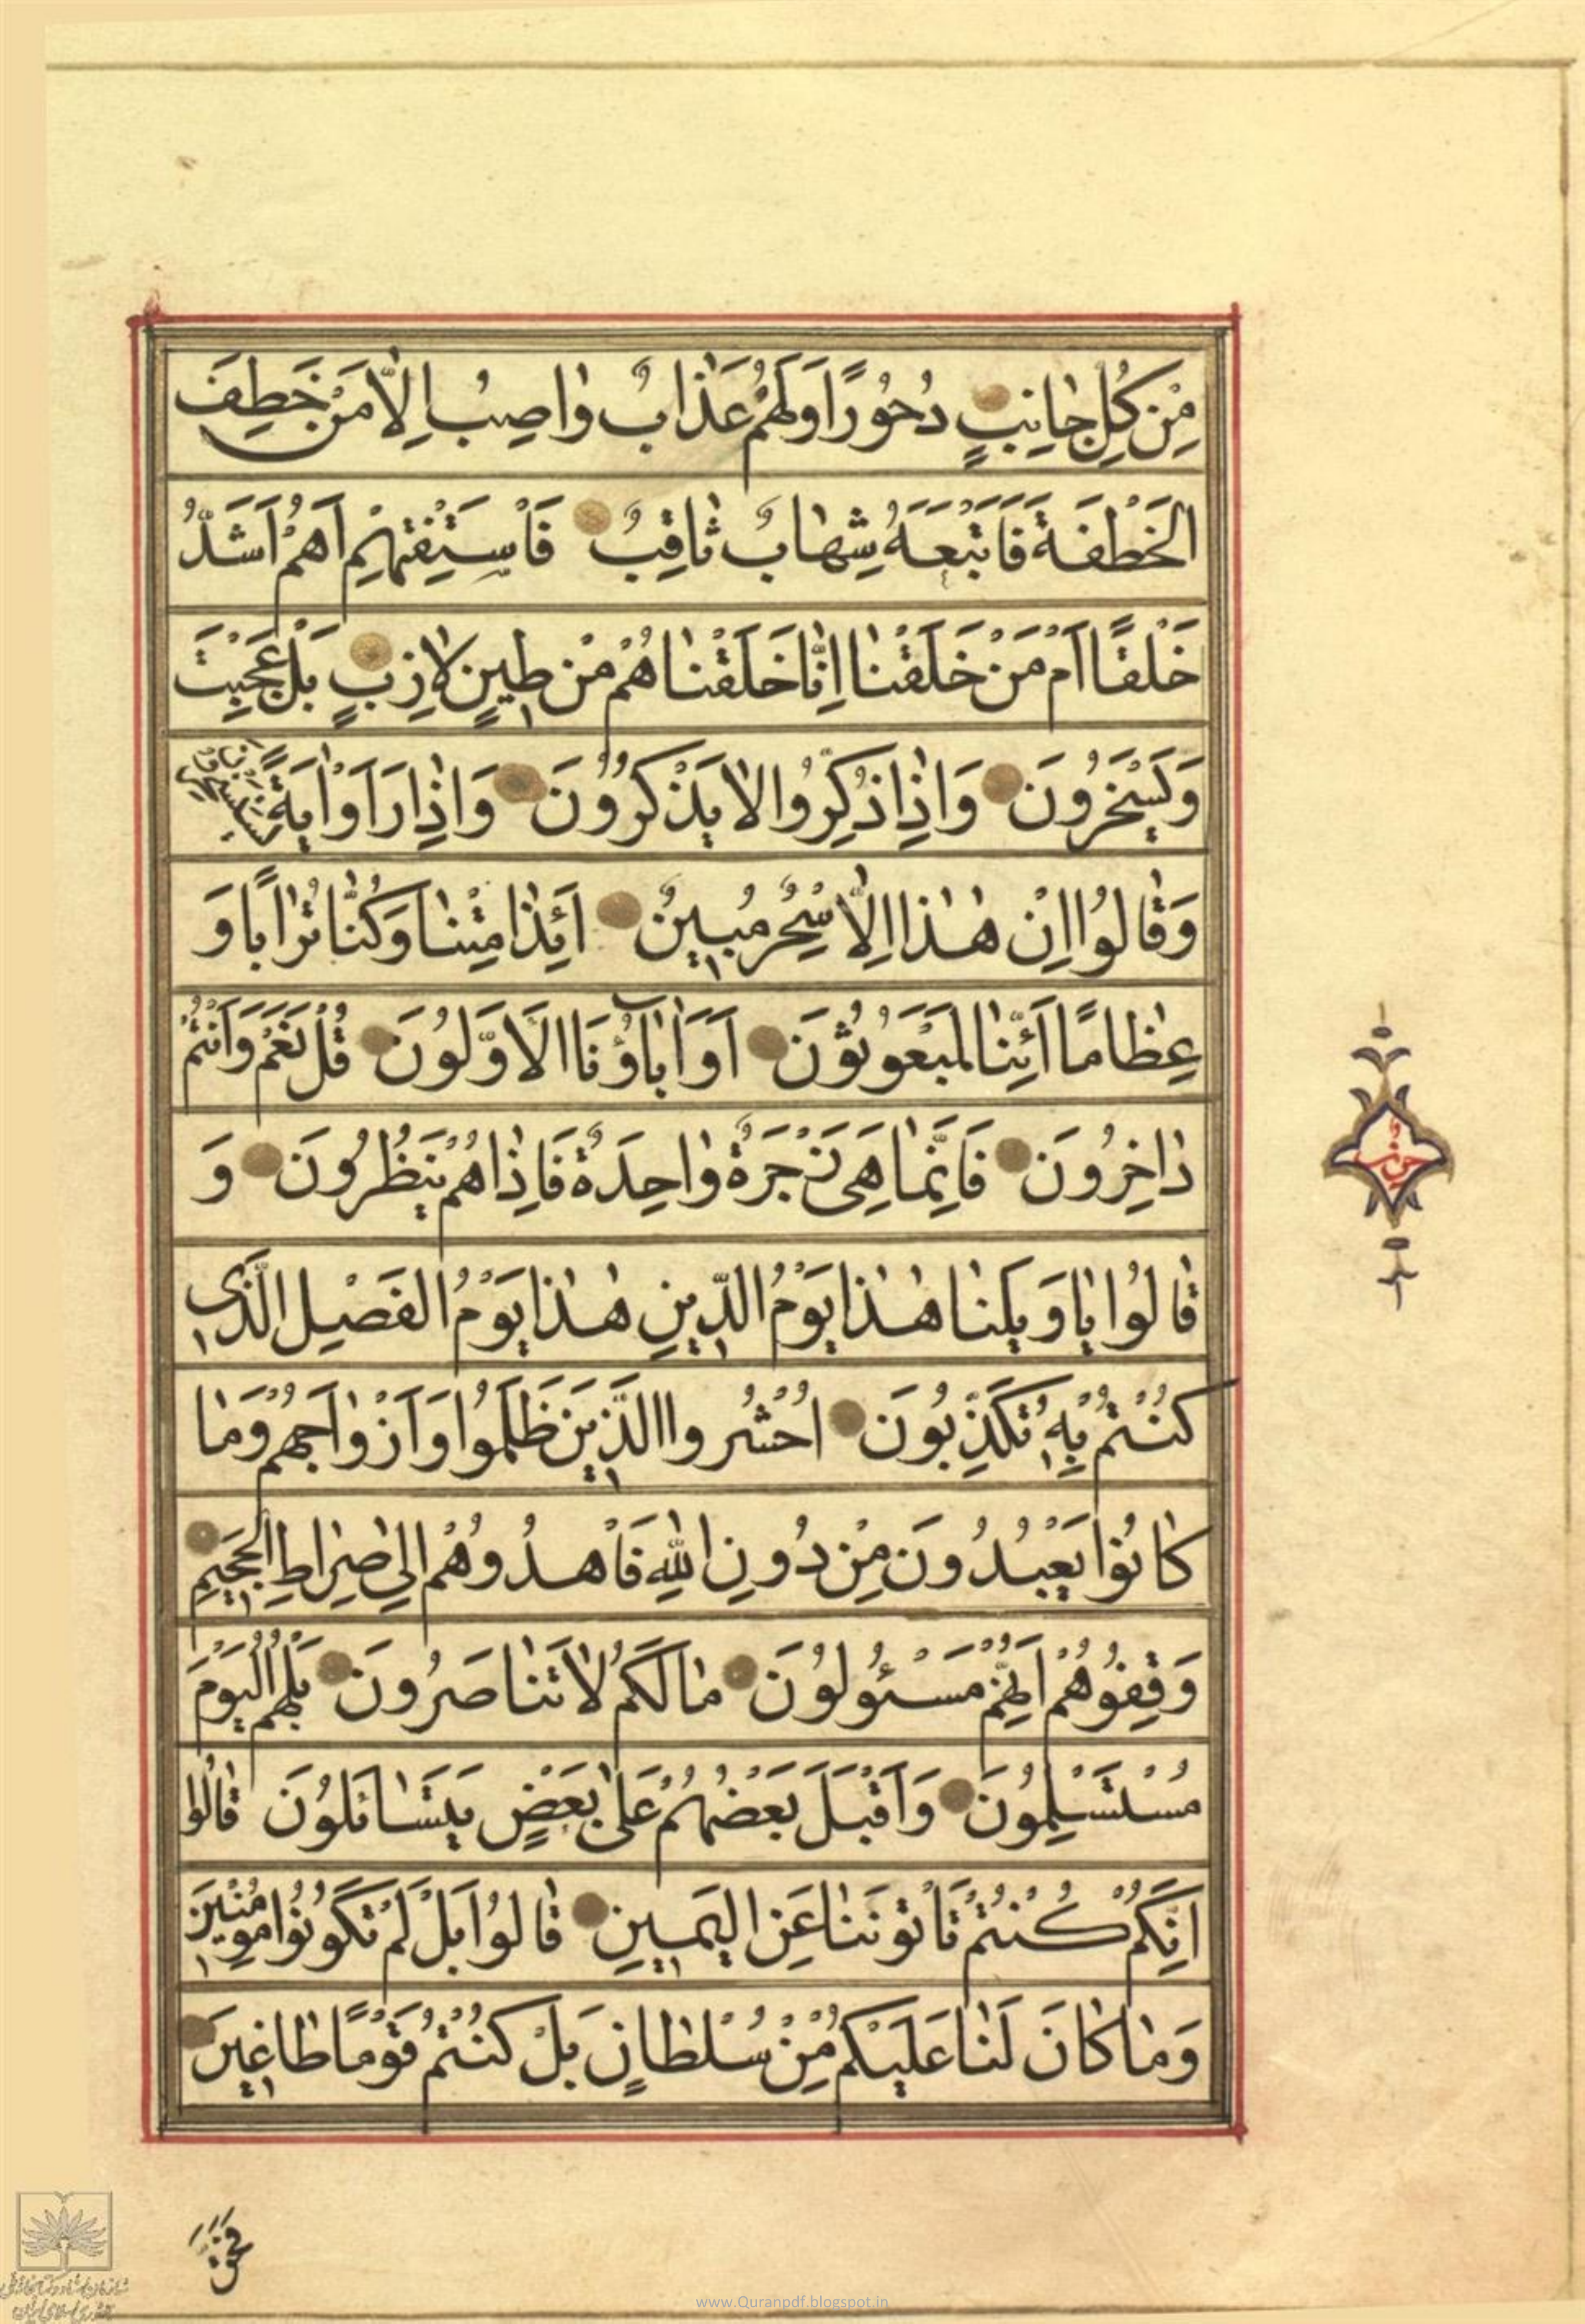 مِنْ كُلِّ جانِبٍ دُحُورًا وَلَهُمْ عَذابٌ واصِبٌ اِلّا مَنْ خَطِفَ
الخَطْفَةَ فَاَتْبَعَهُ شِهابٌ ثاقِبٌ فَاسْتَفْتِهِمْ اَهُمْ اَشَدُّ
خَلْقًا اَمْ مَنْ خَلَقْنا اِنّا خَلَقْناهُمْ مِنْ طِينٍ لازِبٍ بَلْ عَجِبْتَ
وَيَسْخَرُونَ وَاِذا ذُكِّرُوا لا يَذْكُرُونَ وَاِذا رَاَوْا ايَةً يَسْتَسْخِرُونَ
وَقالُوا اِنْ هٰذا اِلّا سِحْرٌ مُبِينٌ اَئِذا مِتْنا وَكُنّا تُرابًا وَ
عِظامًا اَئِنّا لَمَبْعُوثُونَ اَوَ اباؤُنَا الاَوَّلُونَ قُلْ نَعَمْ وَاَنْتُمْ
داخِرُونَ فَاِنَّما هِيَ زَجْرَةٌ واحِدَةٌ فَاِذا هُمْ يَنْظُرُونَ وَ
قالُوا يا وَيْلَنا هٰذا يَوْمُ الدِّينِ هٰذا يَوْمُ الفَصْلِ الَّذِي
كُنْتُمْ بِهِ تُكَذِّبُونَ اُحْشُرُوا الَّذِينَ ظَلَمُوا وَاَزْواجَهُمْ وَما
كانُوا يَعْبُدُونَ مِنْ دُونِ اللهِ فَاهْدُوهُمْ اِلى صِراطِ الجَحِيمِ
وَقِفُوهُمْ اِنَّهُمْ مَسْئُولُونَ مالَكُمْ لا تَناصَرُونَ بَلْ هُمُ اليَوْمَ
مُسْتَسْلِمُونَ وَاَقْبَلَ بَعْضُهُمْ عَلى بَعْضٍ يَتَسائَلُونَ قالُوا
اِنَّكُمْ كُنْتُمْ تَاْتُونَنا عَنِ اليَمِينِ قالُوا بَلْ لَمْ تَكُونُوا مُومِنِينَ
وَما كانَ لَنا عَلَيْكُمْ مِنْ سُلْطانٍ بَلْ كُنْتُمْ قَوْمًا طاغِينَ
فَحَقَّ
www.Quranpdf.blogspot.in